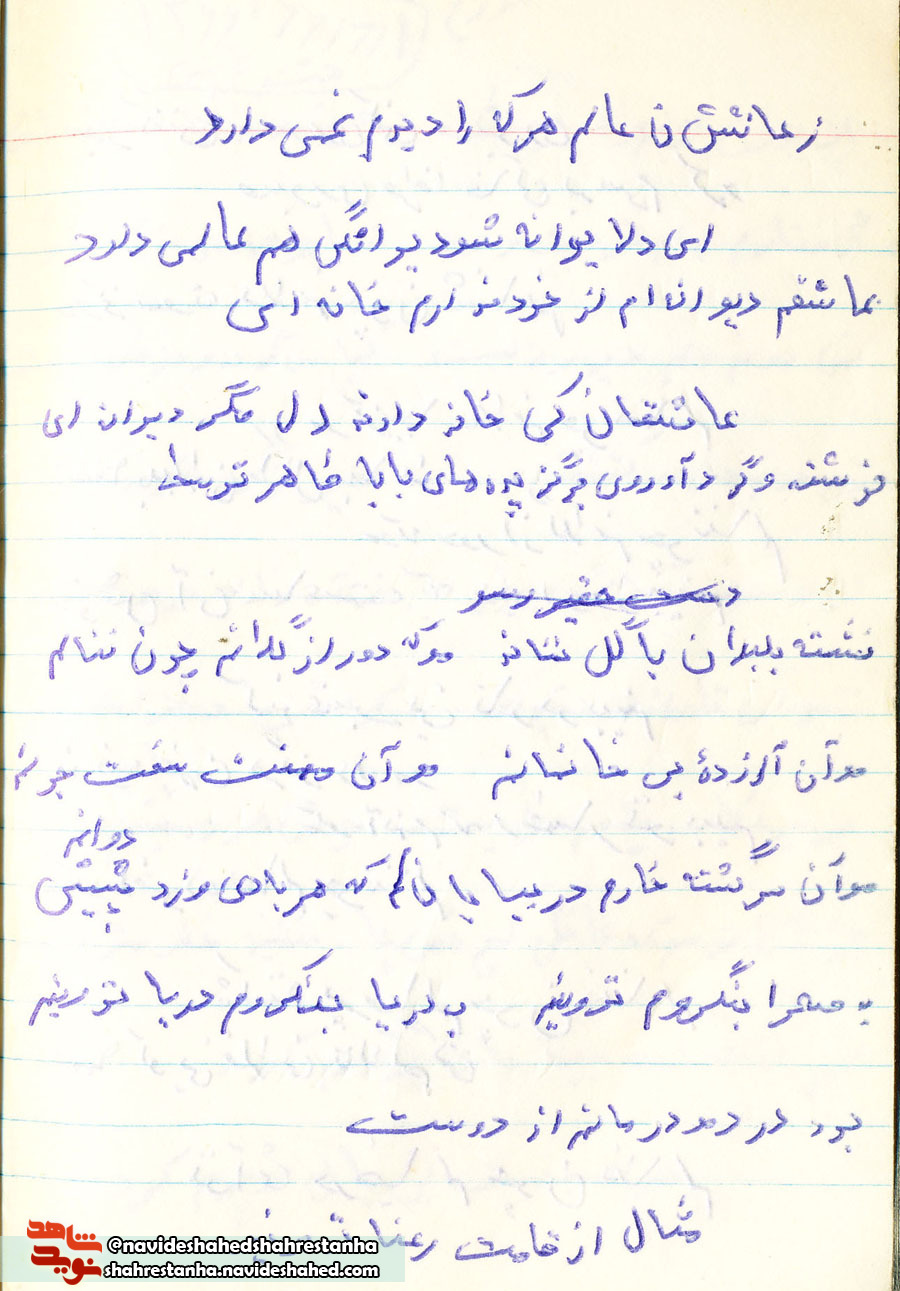 ز عاشقان عالم هر که را دیدم غمی دارد
ای دلا دیوانه شو دیوانگی هم عالمی دارد
عاشقم دیوانه ام از خود ندارم خانه ای
عاشقان کی خانه دارند دل مگر دیوانه ای
نوشته و گرد آوری برگزیده های بابا طاهر توسط
دست حقیر
نشسته بلبلان با گل بنالند موکه دور از گلانم چون ننالم
مو آن آزردهٔ بی خانمانم مو آن محنت سخت جونم
دوانم
مو آن سرگشته خارم در بیابانم که هر بادی وزد پیشش
به صحرا بنگروم ته وینم به دریا بنگروم دریا ته وینم
بود درد و درمانم از دوست
مثال از قامت رعنا
شاهد
نوید
@navideshahedshahrestanha
shahrestanha.navideshahed.com